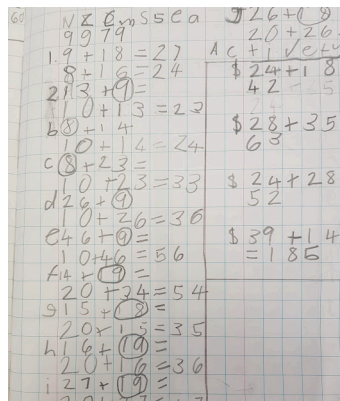 9 9 7 9
1. 9 + 18 = 27
8 + 16 = 24
2 13 + 9 =
10 + 13 = 23
b 8 + 14
10 + 14 = 24
c 8 + 23 =
10 + 23 = 33
d 26 + 9
10 + 26 = 36
e 46 + 9 =
10 + 46 = 56
f 14 + 19 =
20 + 34 = 54
g 15 + 18 =
20 + 15 = 35
h 16 + 19 =
20 + 16 = 36
i 27 + 19 =
J 26 + 18
20 + 26
$ 24 + 18
42
$ 28 + 35
63
$ 24 + 28
52
$ 39 + 14
= 185